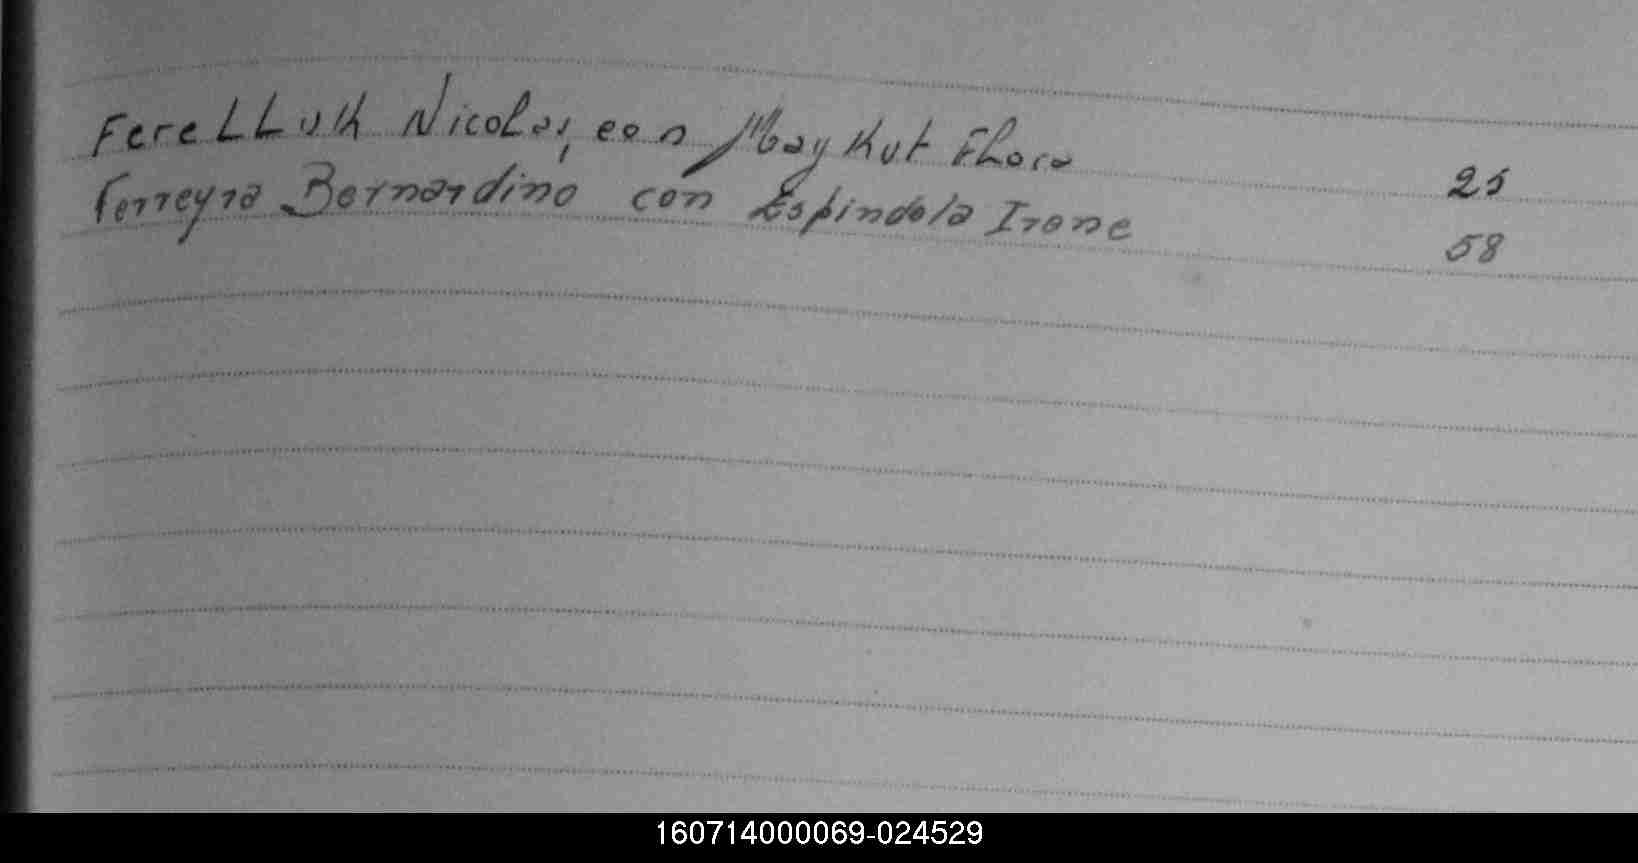 FereLLuk Nicolas, con Maykut Flora 25
Ferreyra Bernardino con Espindola Irene 58
160714000069-024529